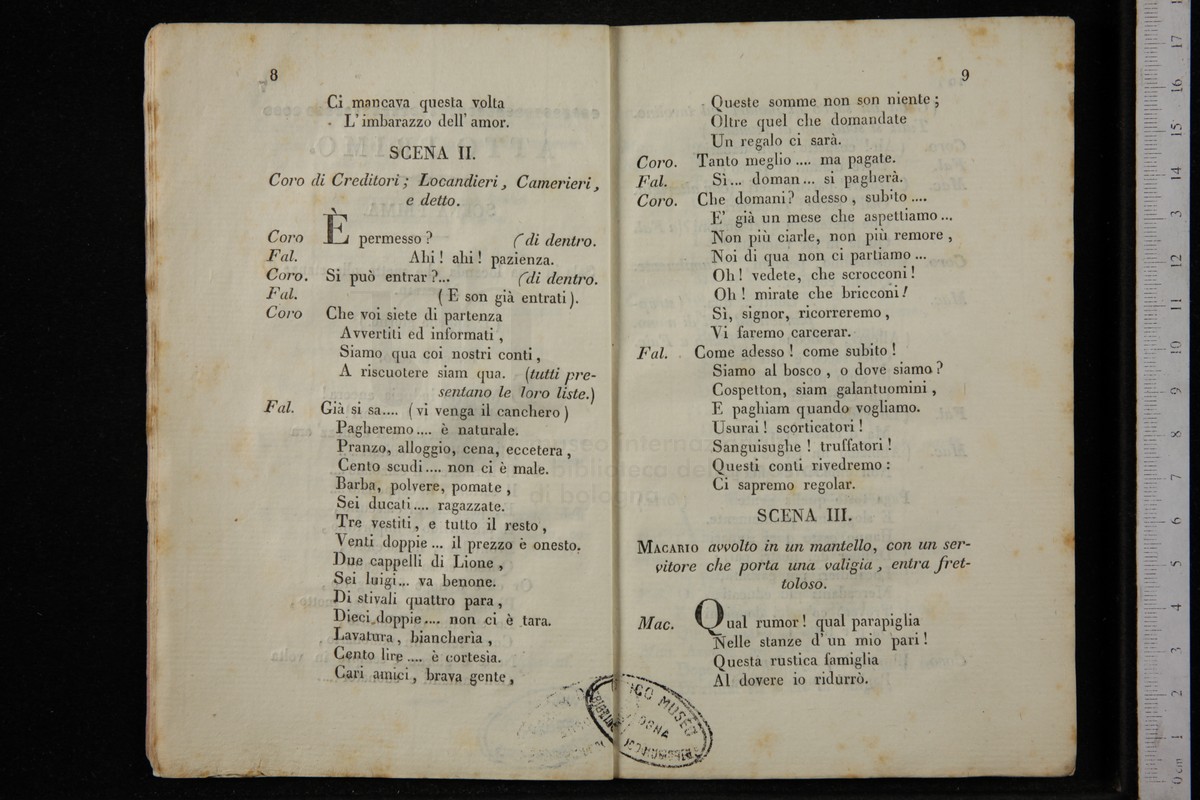 8
Ci mancava questa volta
L' imbarazzo dell' amor.
SCENA II.
Coro di Creditori; Locandieri, Camerieri,
e detto.
Coro È permesso? (di dentro.
Fal. Ahi! ahi! pazienza.
Coro. Si può entrar?... (di dentro.
Fal. (E son già entrati).
Coro Che voi siete di partenza
Avvertiti ed informati,
Siamo qua coi nostri conti,
A riscuotere siam qua. (tutti pre-
sentano le loro liste.)
Fal. Già si sa.... (vi venga il canchero)
Pagheremo.... è naturale.
Pranzo, alloggio, cena, eccetera,
Cento scudi.... non ci è male.
Barba, polvere, pomate,
Sei ducati.... ragazzate.
Tre vestiti, e tutto il resto,
Venti doppie... il prezzo è onesto.
Due cappelli di Lione,
Sei luigi... va benone.
Di stivali quattro para,
Dieci doppie.... non ci è tara.
Lavatura, biancheria,
Cento lire.... è cortesia.
Cari amici, brava gente,
9
Queste somme non son niente;
Oltre quel che domandate
Un regalo ci sarà.
Coro. Tanto meglio.... ma pagate.
Fal. Sì... doman... si pagherà.
Coro. Che domani? adesso, subito....
E' già un mese che aspettiamo...
Non più ciarle, non più remore,
Noi di qua non ci partiamo...
Oh! vedete, che scrocconi!
Oh! mirate che bricconi!
Sì, signor, ricorreremo,
Vi faremo carcerar.
Fal. Come adesso! come subito!
Siamo al bosco, o dove siamo?
Cospetton, siam galantuomini,
E paghiam quando vogliamo.
Usurai! scorticatori!
Sanguisughe! truffatori!
Questi conti rivedremo:
Ci sapremo regolar.
SCENA III.
MACARIO avvolto in un mantello, con un ser-
vitore che porta una valigia, entra fret-
toloso.
Mac. Qual rumor! qual parapiglia
Nelle stanze d' un mio pari!
Questa rustica famiglia
Al dovere io ridurrò.
museo internazionale
biblioteca della
di bologna